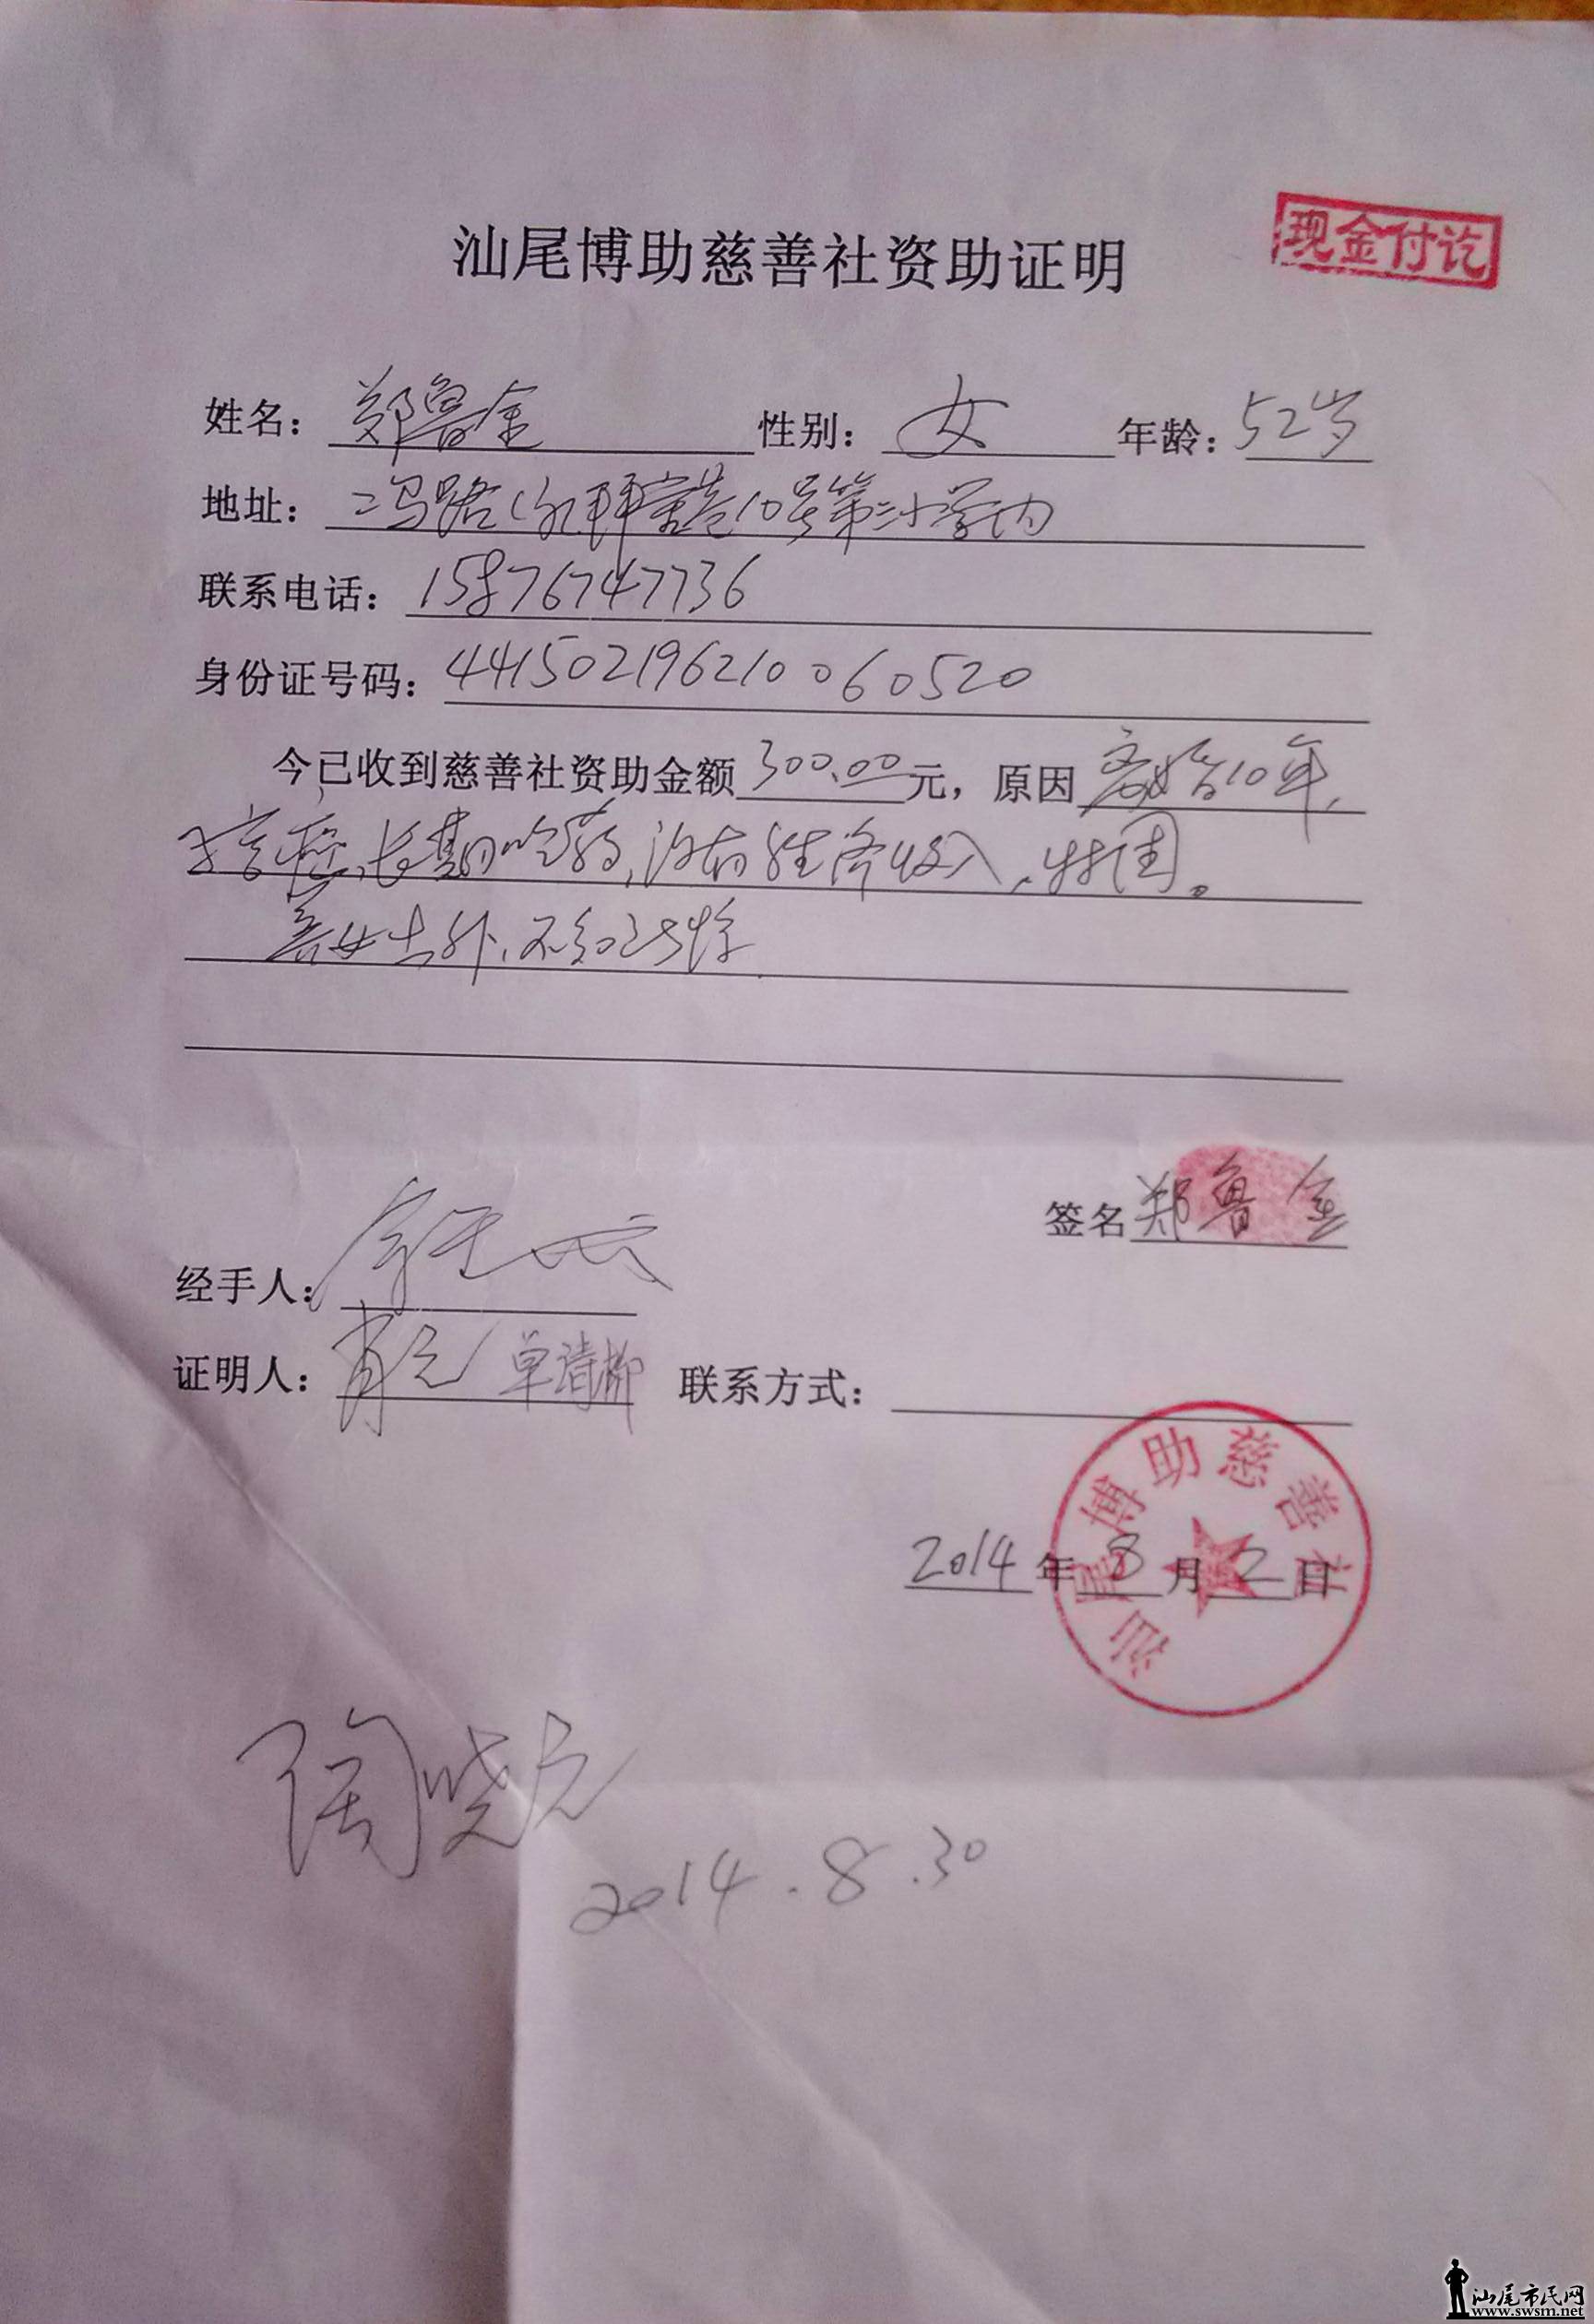 现金付讫
汕尾博助慈善社资助证明
姓名：郑鲁金 性别：女 年龄：52岁
地址：二马路 10号第三小学内
联系电话：15876747736
身份证号码：441502196210060520
今已收到慈善社资助金额300.00元，原因离婚10年，
长期吃药，没有经济收入，特困。
养女出外，不知
签名郑鲁金
经手人：
证明人： 单清柳 联系方式：
2014年8月2日
汕尾博助慈善社
陶晓
2014.8.30
汕尾市民网
www.swsm.net